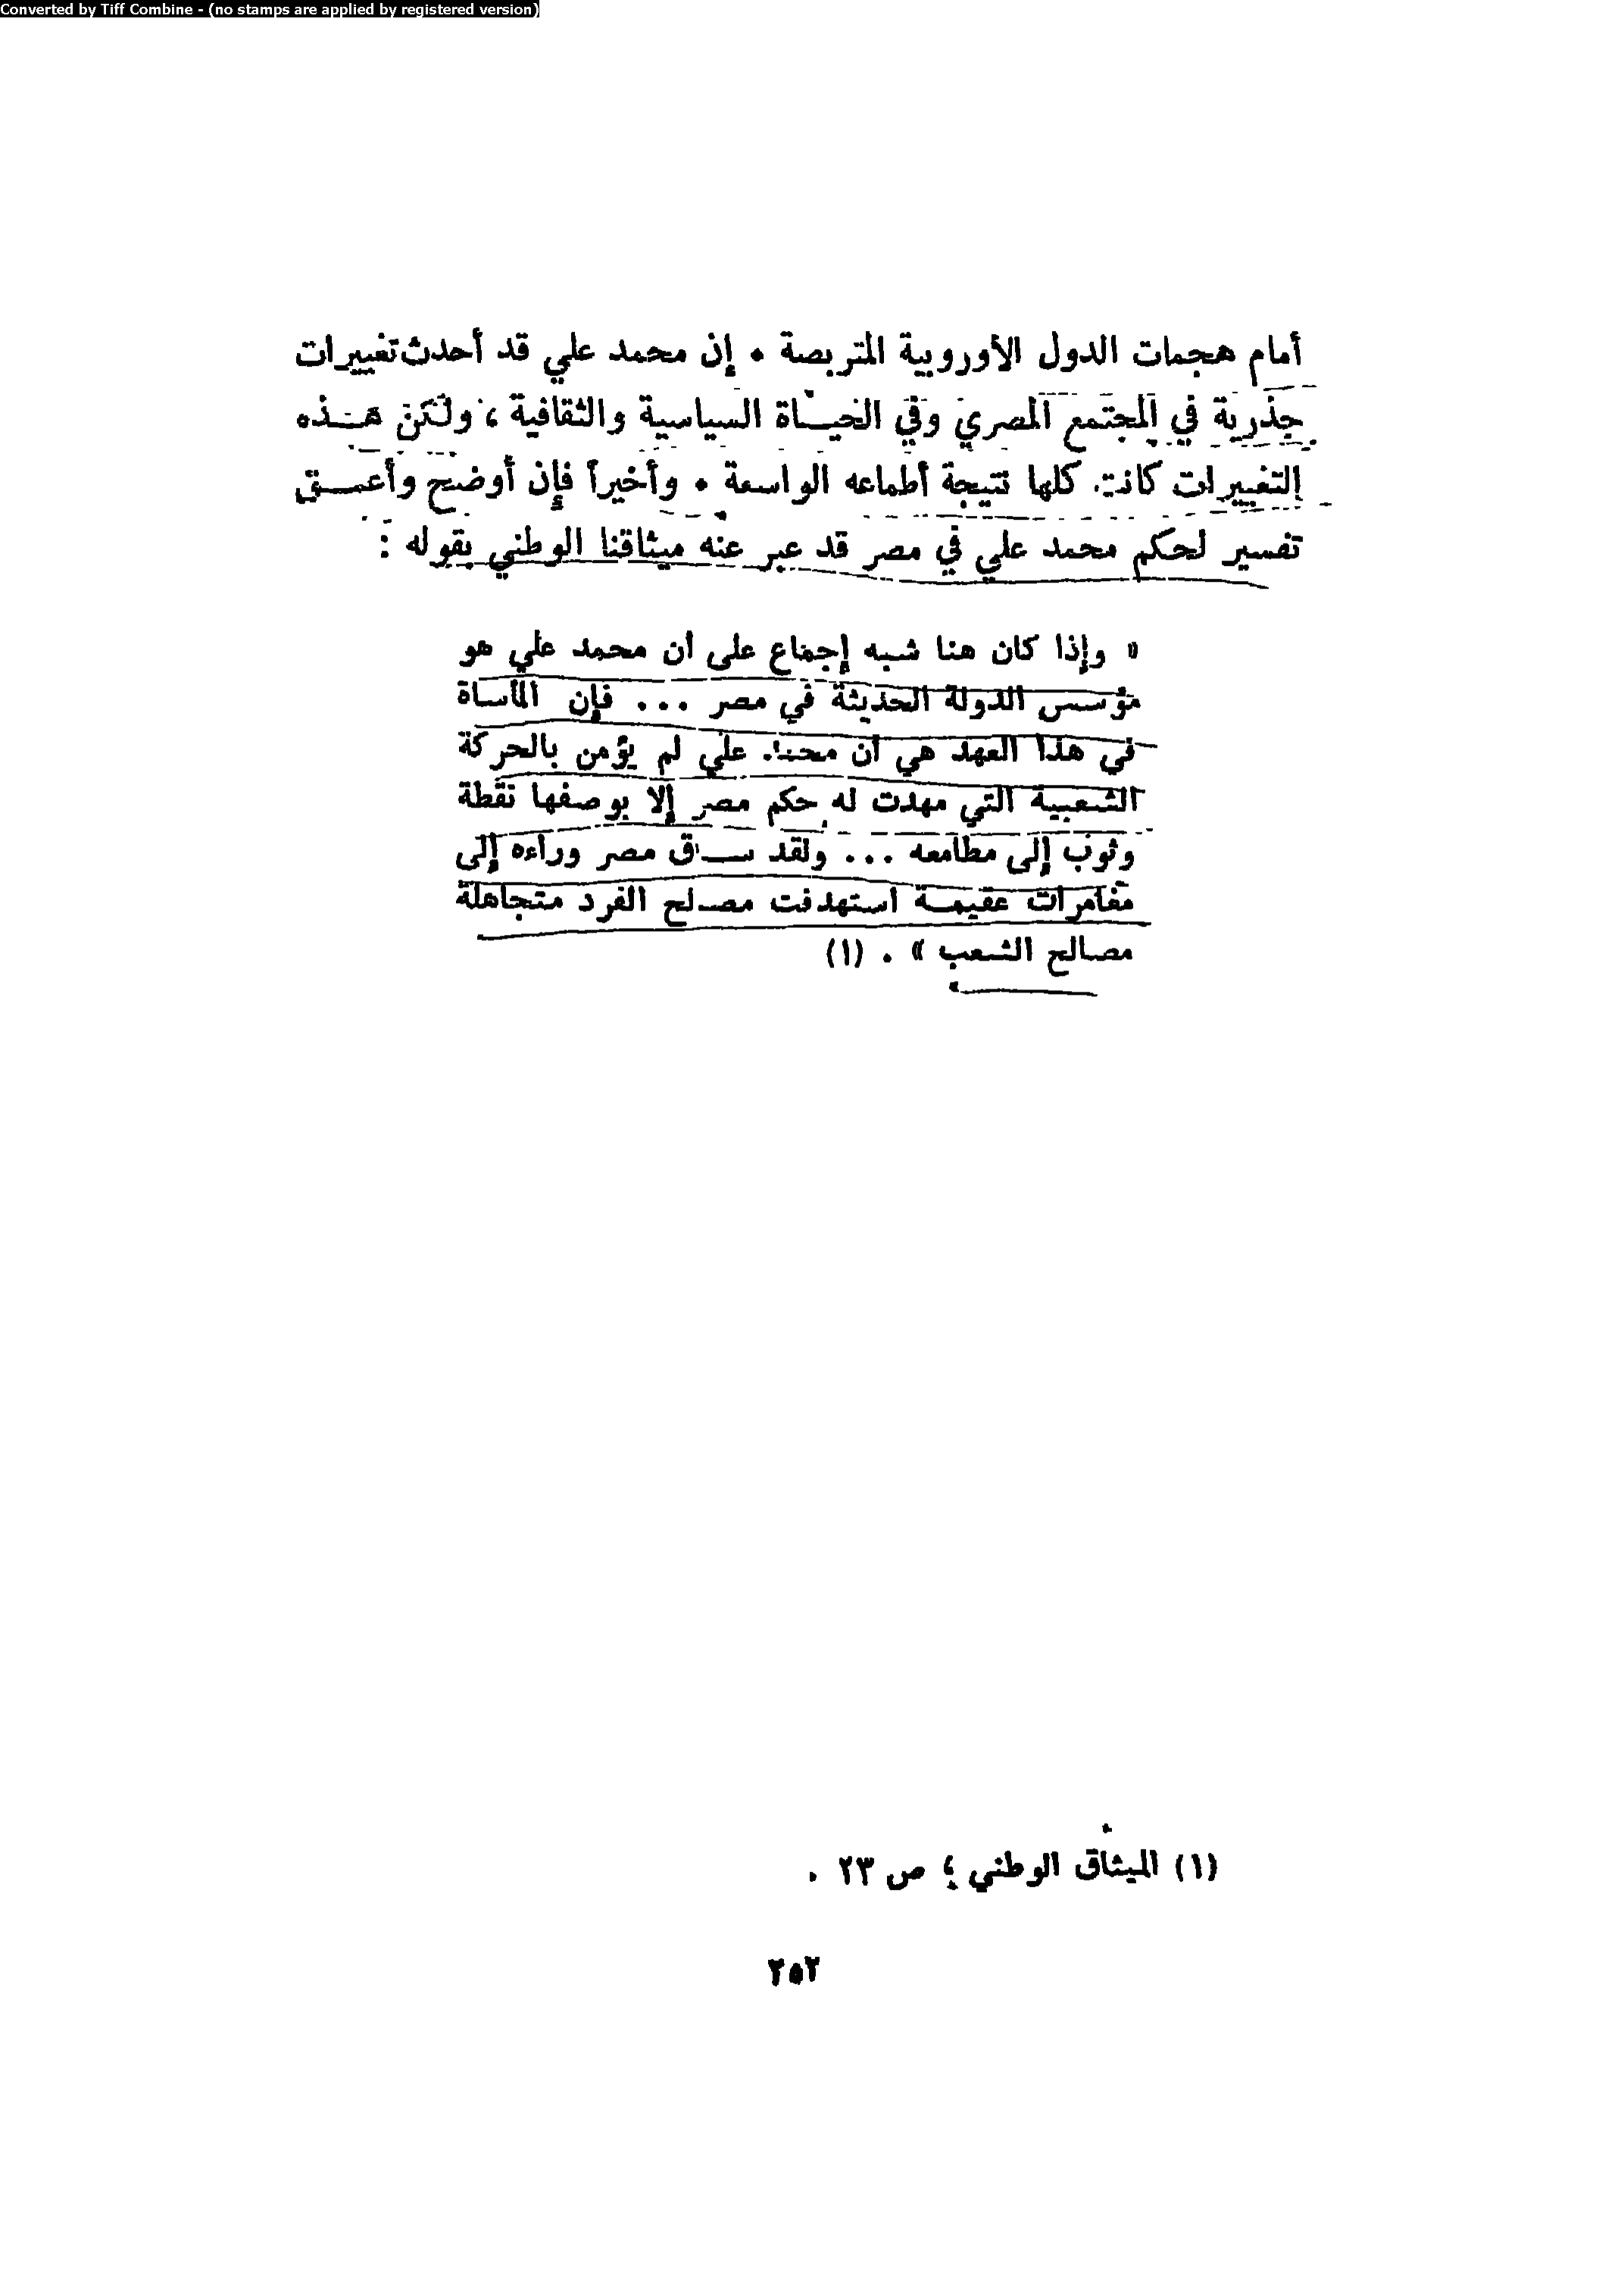 Converted by Tiff Combine - (no stamps are applied by registered version)
أمام هجمات الدول الأوروبية المتربصة . إن محمد علي قد أحدث تغييرات
جذرية في المجتمع المصري وفي الحياة السياسية والثقافية ، ولكن هذه
التغييرات كانت كلها نتيجة أطماعه الواسعة . وأخيراً فإن أوضح وأعمق
تفسير لحكم محمد علي في مصر قد عبر عنه ميثاقنا الوطني بقوله :
« وإذا كان هنا شبه إجماع على أن محمد علي هو
مؤسس الدولة الحديثة في مصر ... فإن المأساة
في هذا العهد هي أن محمد علي لم يؤمن بالحركة
الشعبية التي مهدت له حكم مصر إلا بوصفها نقطة
وثوب إلى مطامعه ... ولقد ساق مصر وراءه إلى
مغامرات عقيمة استهدفت مصالح الفرد متجاهلة
مصالح الشعب » . (١)
(١) الميثاق الوطني ؛ ص ٢٣ .
٢٥٢